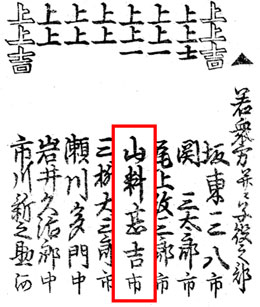 ▲若衆方并ニ子役之部
上上吉 坂東三八 市
上上士 関三太郎 市
上上一 尾上政二郎 市
上上一 山科甚吉 市
上上 三枡大三郎 市
上上 瀬川多門 中
上上 岩井久治郎 中
上上吉 市川新之助 河